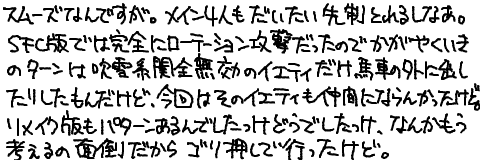 スムーズなんですが。メイン4人もだいたい先制とれるしなあ。
SFC版では完全にローテーション攻撃だったのでかがやくいき
のターンは吹雪系完全無効のイエティだけ馬車の外に出し
たりしたもんだけど、今回はそのイエティも仲間にならんかったけど。
リメイク版もパターンあるんでしたっけどうでしたっけ、なんかもう
考えるの面倒だからゴリ押しで行ったけど。